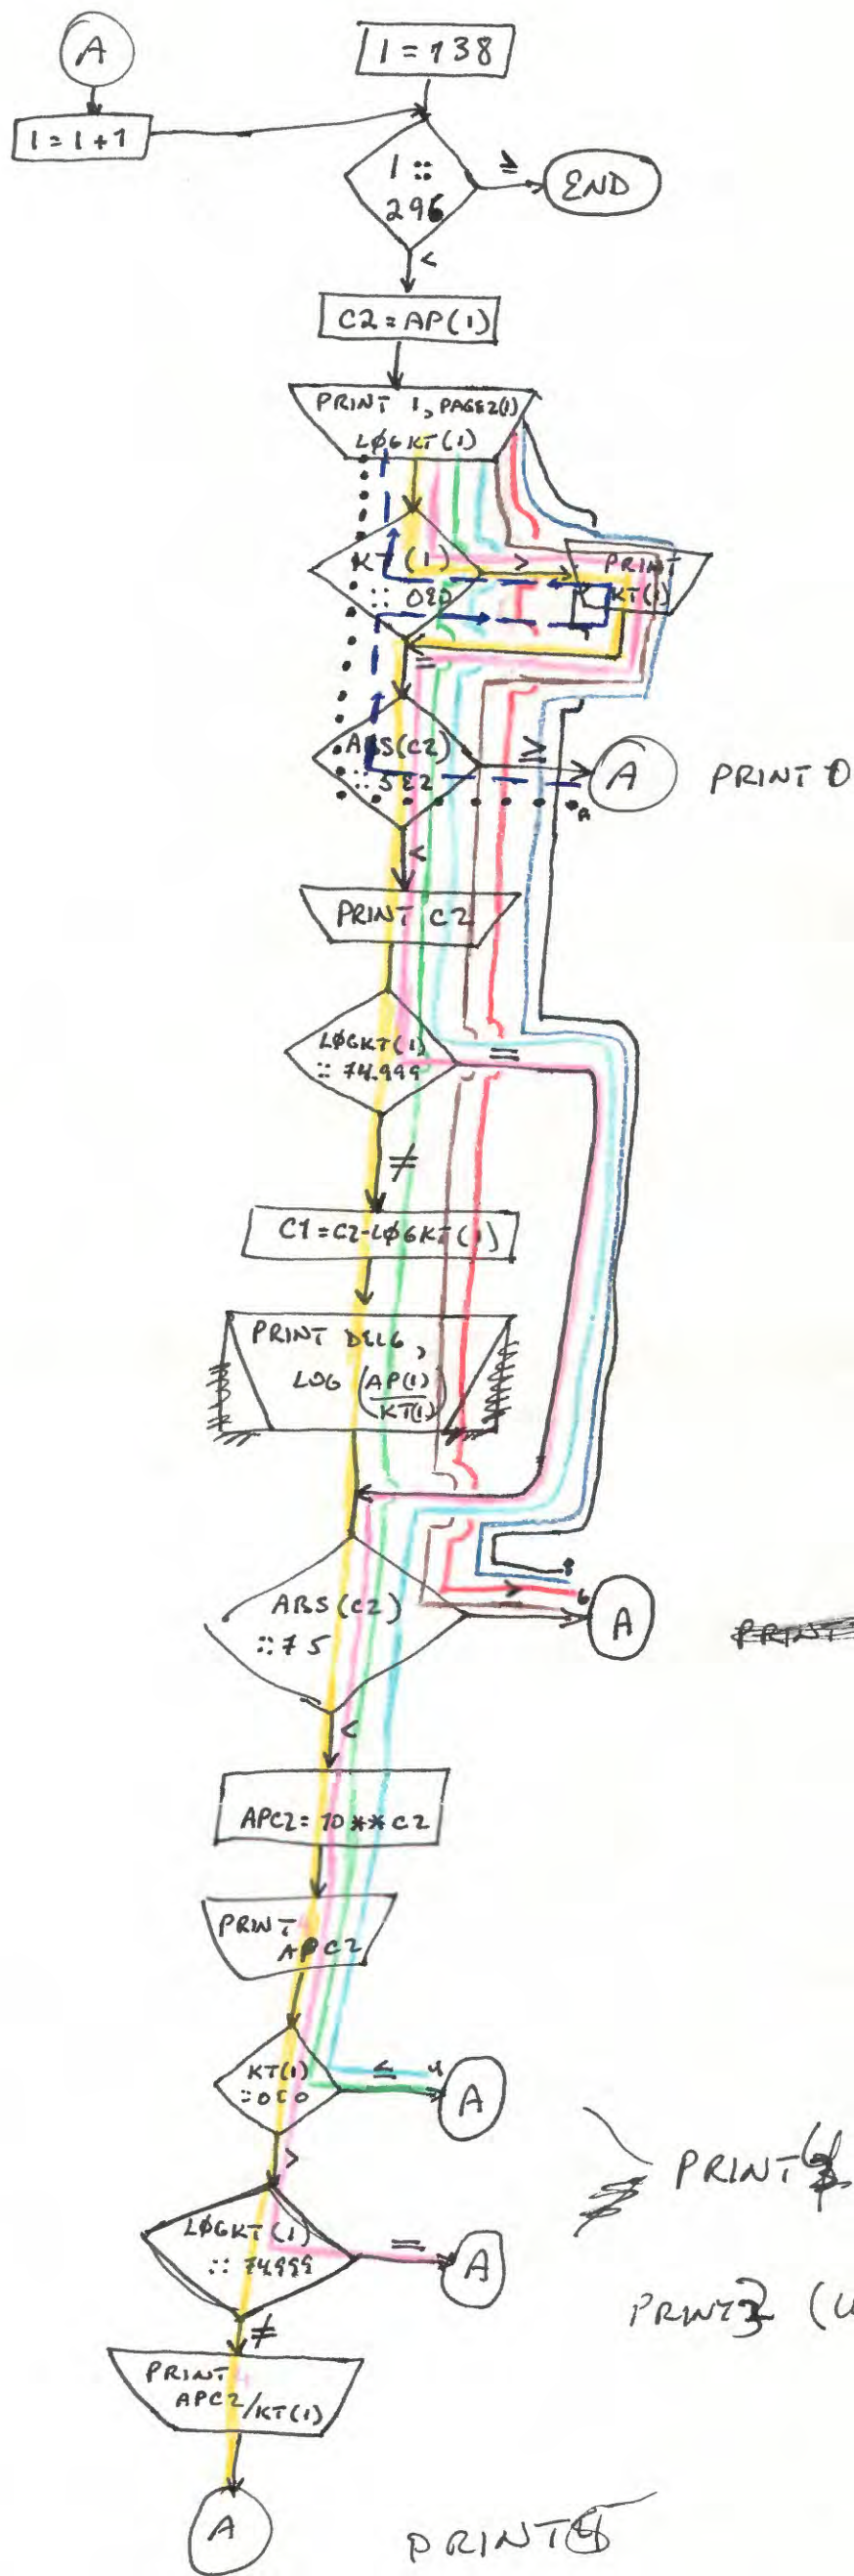 A
I = 138
I = I + 1
I ::
296
≥
END
<
C2 = AP(I)
PRINT I, PAGE2(I)
LØGKT(I)
KT(I)
:: 0E0
>
PRINT
KT(I)
=
ABS(C2)
:: 5E2
≥
A
PRINT 0
<
PRINT C2
LØGKT(I)
:: 74.999
=
≠
C1 = C2-LØGKT(I)
PRINT DELG,
LOG (AP(I)
KT(I))
ABS(C2)
:: 75
>
8
6
A
PRINT
<
APC2 = 10**C2
PRINT
APC2
KT(I)
:: 0E0
≤
4
A
>
PRINT
LØGKT(I)
:: 74.999
=
A
PRINT
≠
PRINT
APC2/KT(I)
A
PRINT